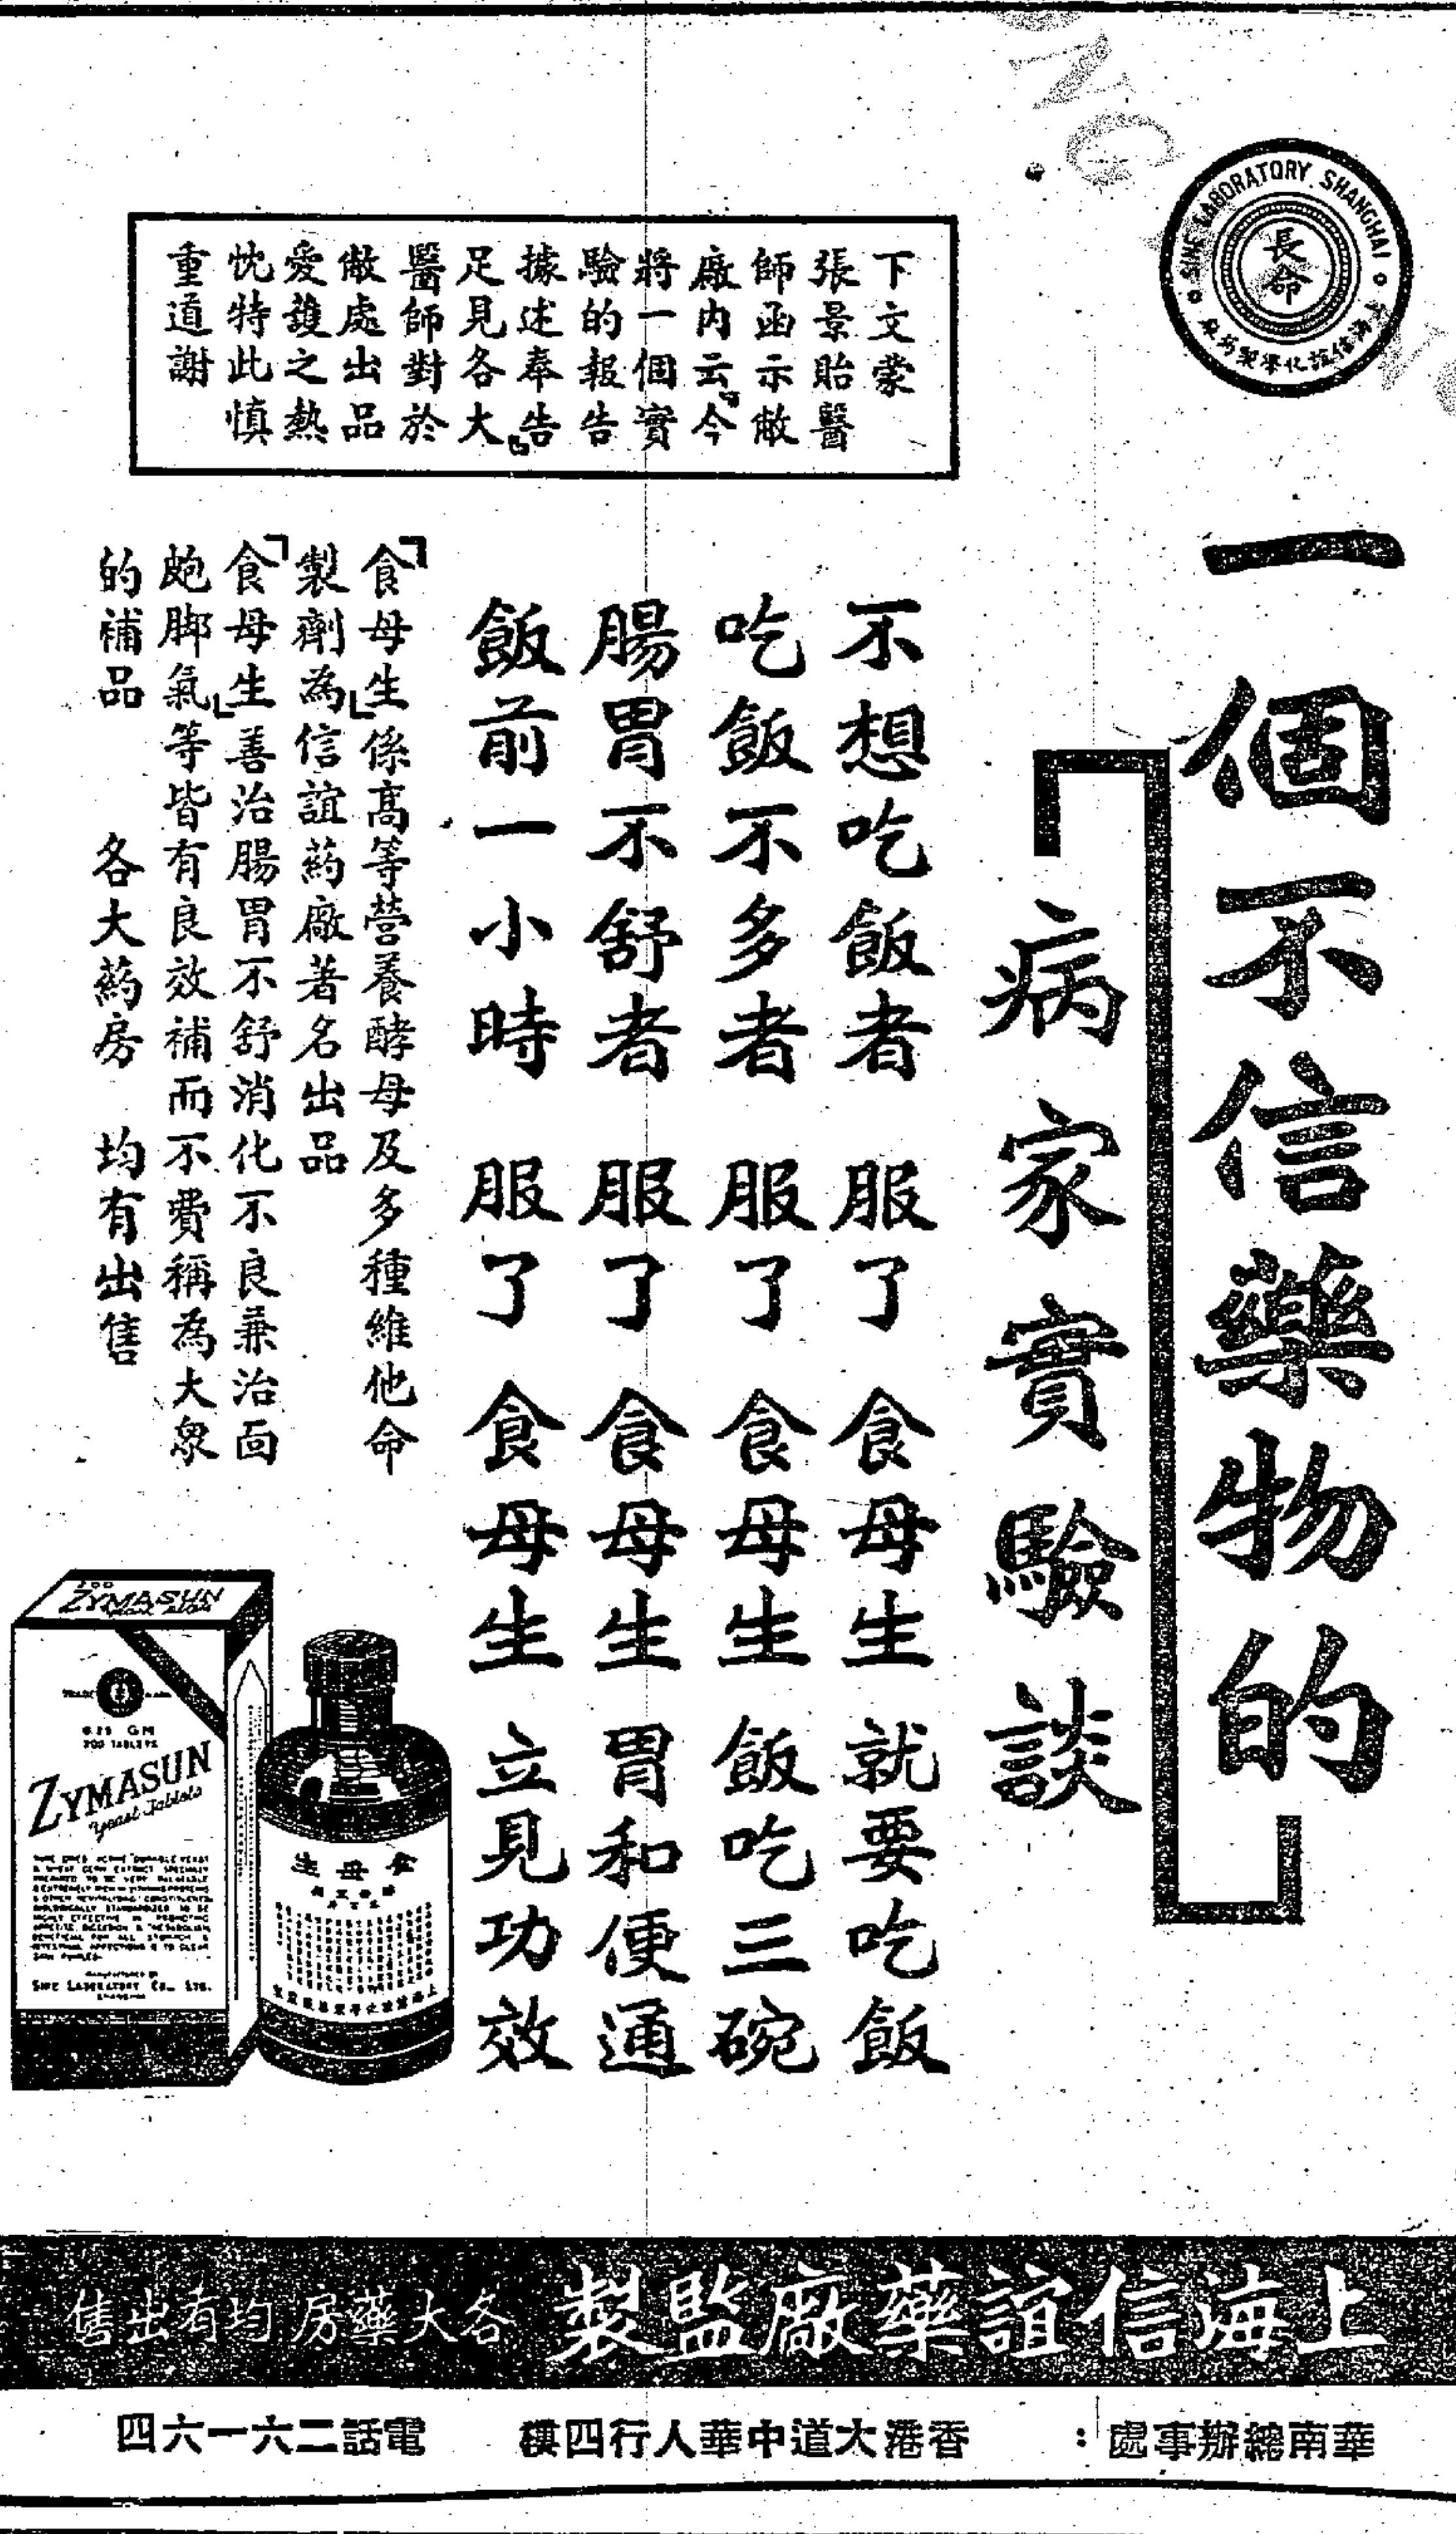 SINE LABORATORY. SHANGHAI
長命
一個不信藥物的
病家實驗談
下文蒙
張景貽醫
師函示敝
廠内云『今
將一個實
驗的報告
據述奉告』
足見各大
醫師對於
敝處出品
愛護之熱
忱特此慎
重道謝
不想吃飯者 服了 食母生 就要吃飯
吃飯不多者 服了 食母生 飯吃三碗
腸胃不舒者 服了 食母生 胃和便通
飯前一小時 服了 食母生 立見功效
「食母生」係高等營養酵母及多種維他命
製劑為信誼葯廠著名出品
「食母生」善治腸胃不舒消化不良兼治面
皰脚氣等皆有良效補而不費稱為大衆
的補品 各大葯房 均有出售
ZYMASUN
TRADE MARK
0.25 GM
200 TABLETS
ZYMASUN
Yeast Tablets
MANUFACTURED BY
SINE LABORATORY CO., LTD.
SHANGHAI
食母生
上海信誼藥廠監製 各大藥房均有出售
華南總辦事處: 香港大道中華人行四樓 電話二六一六四